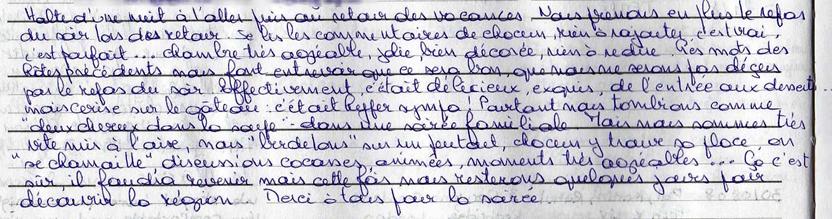 Halte d'une nuit à l'aller puis au retour des vacances. Nous prenons en plus le repas
du soir lors du retour. Je lis les commentaires de chacun, rien à rajouter, c'est vrai,
c'est parfait... chambre très agréable, jolie, bien décorée, rien à redire. Les mots des
hôtes précédents nous font entrevoir que ce sera bon, que nous ne serons pas déçus
par le repas du soir. Effectivement, c'était délicieux, exquis, de l'entrée aux desserts...
mais cerise sur le gâteau : c'était hyper sympa ! Pourtant nous tombions comme
"deux cheveux dans la soupe" dans une soirée familiale. Mais nous sommes très
vite mis à l'aise, nous "berdelons" sur un peu tout, chacun y trouve sa place, on
"se chamaille" discussions cocasses, animées, moments très agréables... Ça c'est
sûr, il faudra revenir mais cette fois nous resterons quelques jours pour
découvrir la région. Merci à tous pour la soirée.